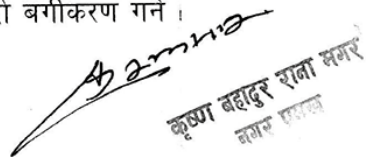 बर्गीकरण गर्ने ।
कृष्ण बहादुर राना मगर
नगर प्रमुख